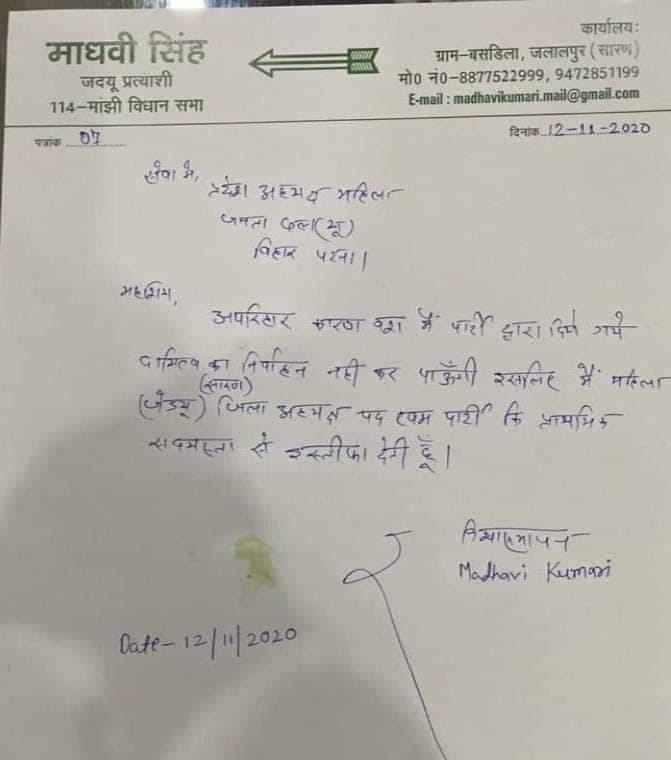 माधवी सिंह
जदयू प्रत्याशी
114-मांझी विधान सभा
कार्यालयः
ग्राम-बसडिला, जलालपुर (सारण)
मो0 नं0-8877522999, 9472851199
E-mail : madhavikumari.mail@gmail.com
पत्रांक 07
दिनांक 12-11-2020
सेवा में,
प्रदेश अध्यक्ष महिला
जनता दल (यू)
बिहार पटना।
महाशय,
अपरिहार कारण वश मैं पार्टी द्वारा दिये गये
दायित्व का निर्वाहन नही कर पाऊँगी इसलिए मैं महिला
(जेडयू) (सारण) जिला अध्यक्ष पद एवम पार्टी कि प्राथमिक
सदस्यता से इस्तीफा देती हूँ।
Madhavi Kumari
Date- 12/11/2020